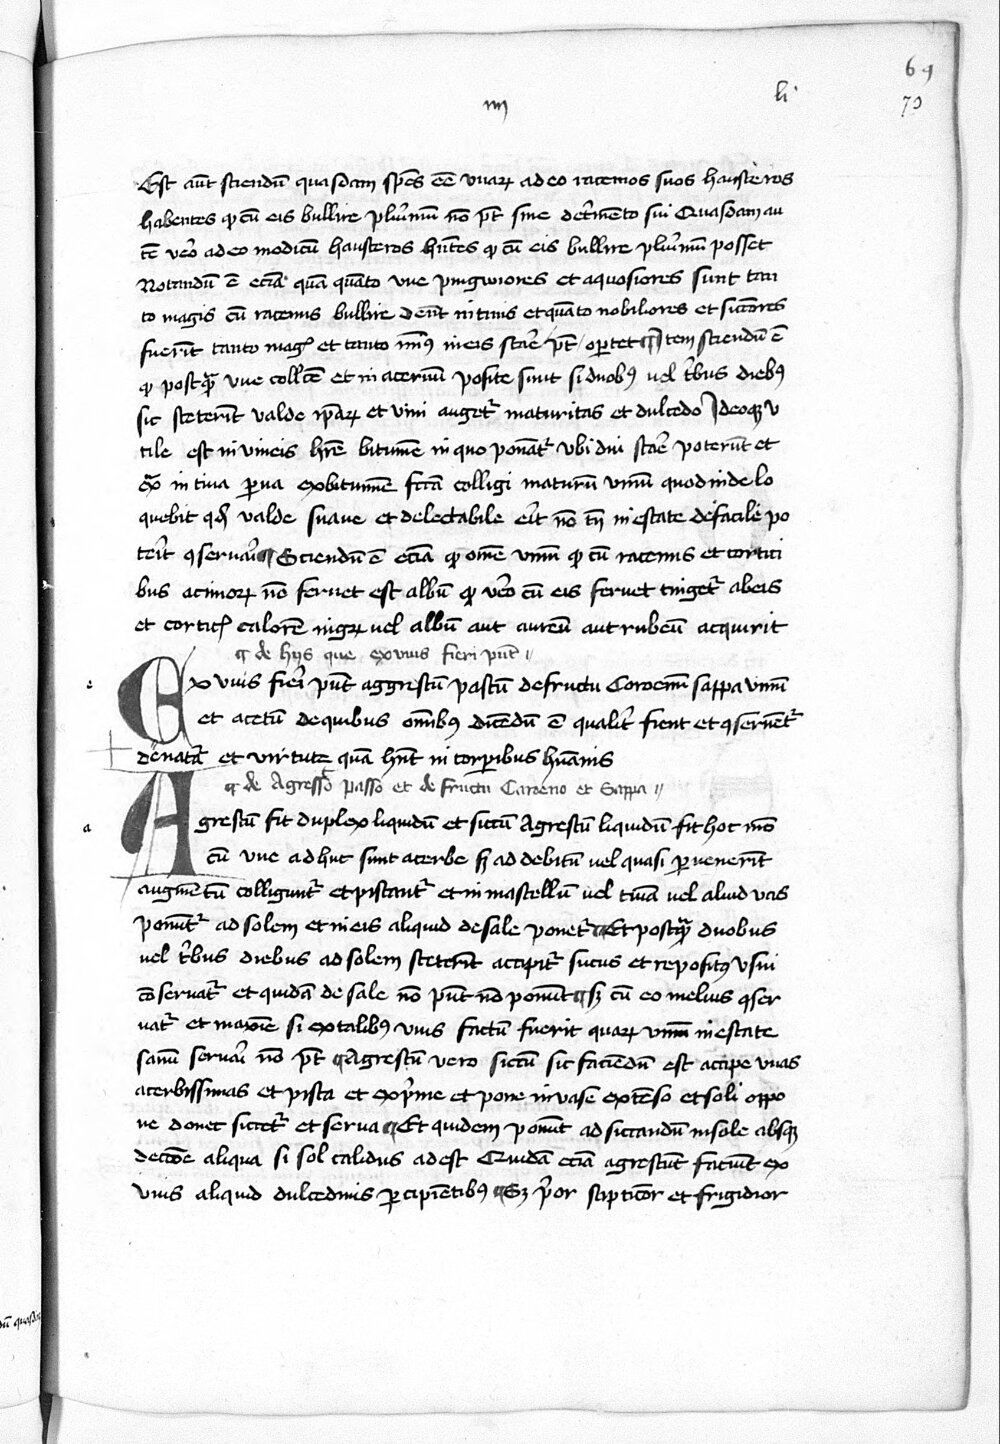 69
li
70
iiii
Est aūt sciendū quasdam sp̄es eē vuaꝝ adeo racemos suos hausteros
habentes ꝙ cū eis bullire plurimū nō p̄t sine det̄mento sui Quasdam au
tē vero adeo modicū hausteros hn̄tes ꝙ cū eis bullire plurimū posset
Notandū ē eciā quā quāto vue pingwiores et aquosiores sunt tan
to magis cū racemis bullire debēt intimis et quāto nobiliores et sicciores
fuerīt tanto magꝭ et tanto mīꝰ in eis starē p̄t oportet ¶ Item sciendū ē
ꝙ postꝙ̄ vue collcē et in acervū posite sint si duobꝰ uel t̄bus diebꝰ
sic steterīt valde ip̄aꝝ et vini auget᷑ maturitas et dulcedo Ideoqꝫ v
tile est in vineis hr̄e bitumē in quo ponāt᷑ vbi diu starē poterūt et
in tina parua ex bitumine fcā colligi maturū vinū quod inde lo
quebit valde suaue et delectabile erit nō tn̄ in estate de facile po
terit ꝯseruari ¶ Sciendū ē eciā ꝙ omē vinū ꝙ cū racemis et cortici
bus acinoꝝ nō feruet est albū ꝙ vero cū eis feruet tinget᷑ ab eis
et corticꝭ calorē nigꝝ uel albū aut aureū aut rubeū acquirit
¶ de hijs que ex vuis fieri pūt //
e
Ex vuis fieri pūt aggrestū pastū defructū Caroenū sappa vinū
et acetū de quibus omībꝰ dicēdū ē qualit̄ fient et ꝯseruēt᷑
denatā et virtute quā hn̄t in corporibus hūanis
¶ de Agresto passo et de fructu Caroeno et Sappa //
a
Agrestū fit duplex liquidū et siccū Agrestū liquidū fit hoc mō
cū vue adhuc sunt acerbe sꝫ ad debitū uel quasi peruenerīt
augmentū colligunt᷑ et pistant᷑ et in mastellū uel tinā uel aliud vas
ponūt᷑ ad solem et in eis aliquid de sale ponet᷑ ¶ Et postꝙ̄ duobus
uel t̄bus diebus ad solem steterīt accipit᷑ sucus et repositꝰ vsui
cōseruat᷑ et quidā de sale nō pūt nō ponūt ¶ sꝫ cū eo melius ꝯser
uat᷑ et maxīe si ex talibꝰ vuis factū fuerit quaꝝ vinū in estate
sanū seruari nō p̄t ¶ Agrestū vero siccū sic faciēdū est accipe vuas
acerbissimas et pista et exp̄me et pone in vase extēso et soli oppo
ne donec siccet᷑ et serua ¶ Et quidem ponūt ad siccandū in sole absqꝫ
decocōe aliqua si sol calidus adest Quidā eciā agrestūt faciūt ex
vuis aliquid dulcedinis ꝑcipientibꝰ ¶ Sꝫ p̄or stipticior et frigidior